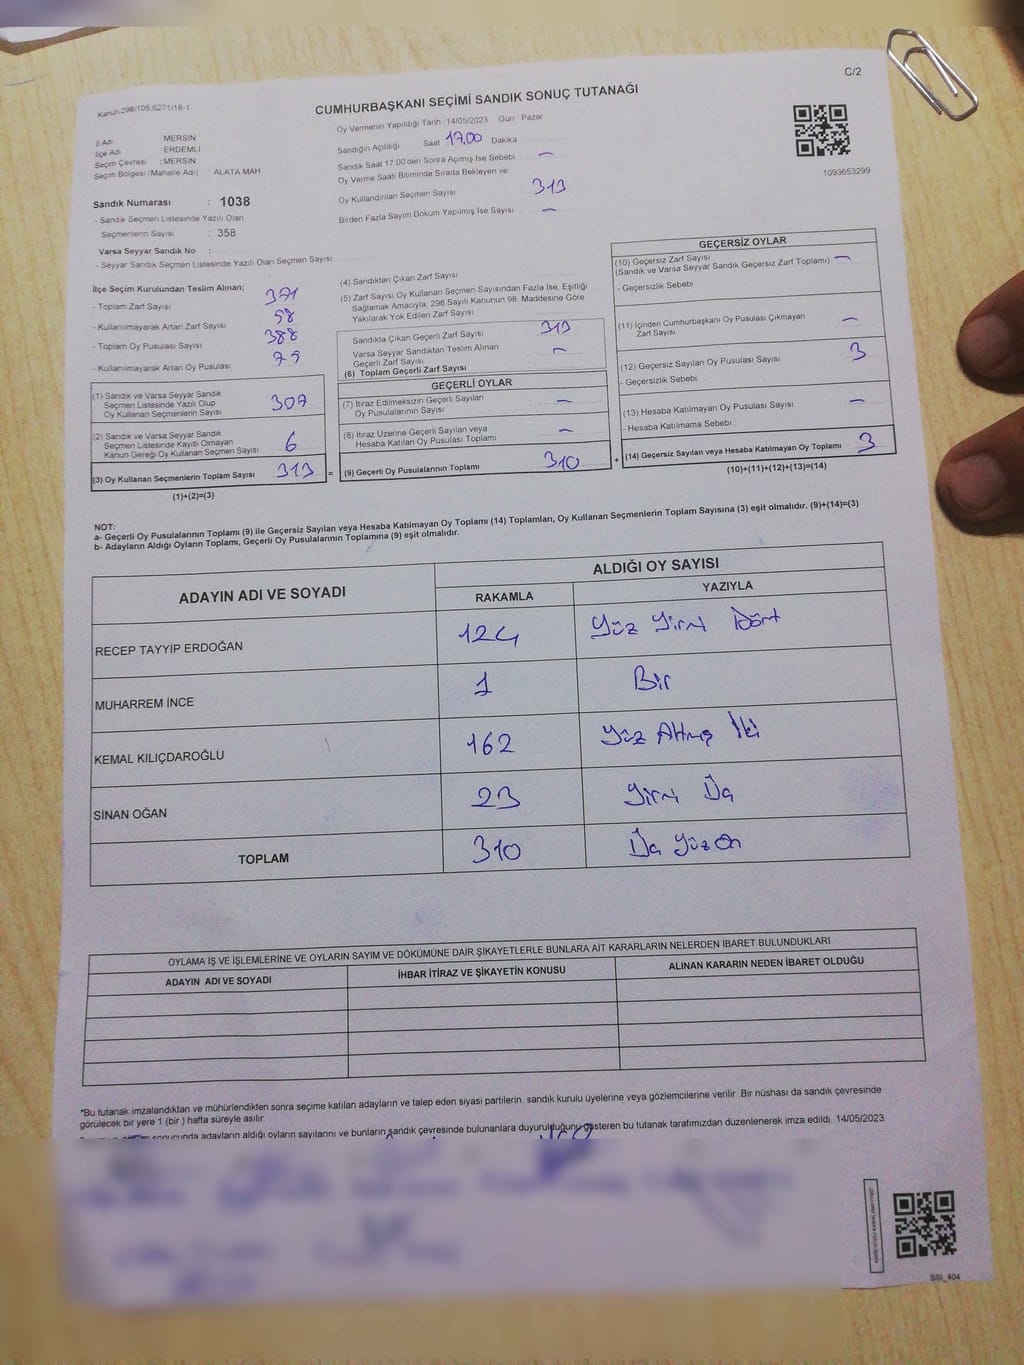 C/2
Kanun 298/105 6271/18-1
CUMHURBAŞKANI SEÇİMİ SANDIK SONUÇ TUTANAĞI
İl Adı MERSİN
İlçe Adı ERDEMLİ
Seçim Çevresi : MERSİN
Seçim Bölgesi (Mahalle Adı) : ALATA MAH
Sandık Numarası : 1038
- Sandık Seçmen Listesinde Yazılı Olan
Seçmenlerin Sayısı : 358
Varsa Seyyar Sandık No :
- Seyyar Sandık Seçmen Listesinde Yazılı Olan Seçmen Sayısı
Oy Vermenin Yapıldığı Tarih : 14/05/2023 Gün : Pazar
Sandığın Açıldığı Saat 17.00 Dakika
Sandık Saat 17 00'den Sonra Açımış İse Sebebi —
Oy Verme Saati Bitiminde Sırada Bekleyen ve
Oy Kullandırılan Seçmen Sayısı 313
Birden Fazla Sayım Döküm Yapılmış İse Sayısı —
1093653299
İlçe Seçim Kurulundan Teslim Alınan;
- Toplam Zarf Sayısı 371
- Kullanılmayarak Artan Zarf Sayısı 58
- Toplam Oy Pusulası Sayısı 388
- Kullanılmayarak Artan Oy Pusulası 75
(1) Sandık ve Varsa Seyyar Sandık
Seçmen Listesinde Yazılı Olup
Oy Kullanan Seçmenlerin Sayısı 307
(2) Sandık ve Varsa Seyyar Sandık
Seçmen Listesinde Kayıtlı Olmayan
Kanun Gereği Oy Kullanan Seçmen Sayısı 6
(3) Oy Kullanan Seçmenlerin Toplam Sayısı 313 =
(1)+(2)=(3)
(4) Sandıktan Çıkan Zarf Sayısı
(5) Zarf Sayısı Oy Kullanan Seçmen Sayısından Fazla İse, Eşitliği
Sağlamak Amacıyla, 298 Sayılı Kanunun 98. Maddesine Göre
Yakılarak Yok Edilen Zarf Sayısı
Sandıkta Çıkan Geçerli Zarf Sayısı 313
Varsa Seyyar Sandıktan Teslim Alınan
Geçerli Zarf Sayısı —
(6) Toplam Geçerli Zarf Sayısı
GEÇERLİ OYLAR
(7) İtiraz Edilmeksizin Geçerli Sayılan
Oy Pusulalarının Sayısı —
(8) İtiraz Üzerine Geçerli Sayılan veya
Hesaba Katılan Oy Pusulası Toplamı —
(9) Geçerli Oy Pusulalarının Toplamı 310 +
GEÇERSİZ OYLAR
(10) Geçersiz Zarf Sayısı —
(Sandık ve Varsa Seyyar Sandık Geçersiz Zarf Toplamı)
- Geçersizlik Sebebi
(11) İçinden Cumhurbaşkanı Oy Pusulası Çıkmayan
Zarf Sayısı —
(12) Geçersiz Sayılan Oy Pusulası Sayısı 3
- Geçersizlik Sebebi
(13) Hesaba Katılmayan Oy Pusulası Sayısı —
- Hesaba Katılmama Sebebi :
(14) Geçersiz Sayılan veya Hesaba Katılmayan Oy Toplamı 3
(10)+(11)+(12)+(13)=(14)
NOT:
a- Geçerli Oy Pusulalarının Toplamı (9) ile Geçersiz Sayılan veya Hesaba Katılmayan Oy Toplamı (14) Toplamları, Oy Kullanan Seçmenlerin Toplam Sayısına (3) eşit olmalıdır. (9)+(14)=(3)
b- Adayların Aldığı Oyların Toplamı, Geçerli Oy Pusulalarının Toplamına (9) eşit olmalıdır.
ADAYIN ADI VE SOYADI
ALDIĞI OY SAYISI
RAKAMLA YAZIYLA
RECEP TAYYİP ERDOĞAN 124 Yüz Yirmi Dört
MUHARREM İNCE 1 Bir
KEMAL KILIÇDAROĞLU 162 Yüz Altmış İki
SİNAN OĞAN 23 Yirmi Üç
TOPLAM 310 Üç Yüz On
OYLAMA İŞ VE İŞLEMLERİNE VE OYLARIN SAYIM VE DÖKÜMÜNE DAİR ŞİKAYETLERLE BUNLARA AİT KARARLARIN NELERDEN İBARET BULUNDUKLARI
ADAYIN ADI VE SOYADI İHBAR İTİRAZ VE ŞİKAYETİN KONUSU ALINAN KARARIN NEDEN İBARET OLDUĞU
*Bu tutanak imzalandıktan ve mühürlendikten sonra seçime katılan adayların ve talep eden siyasi partilerin, sandık kurulu üyelerine veya gözlemcilerine verilir. Bir nüshası da sandık çevresinde
görülecek bir yere 1 (bir ) hafta süreyle asılır.
sonucunda adayların aldığı oyların sayılarını ve bunların sandık çevresinde bulunanlara duyurulduğunu gösteren bu tutanak tarafımızdan düzenlenerek imza edildi. 14/05/2023
SSI_404